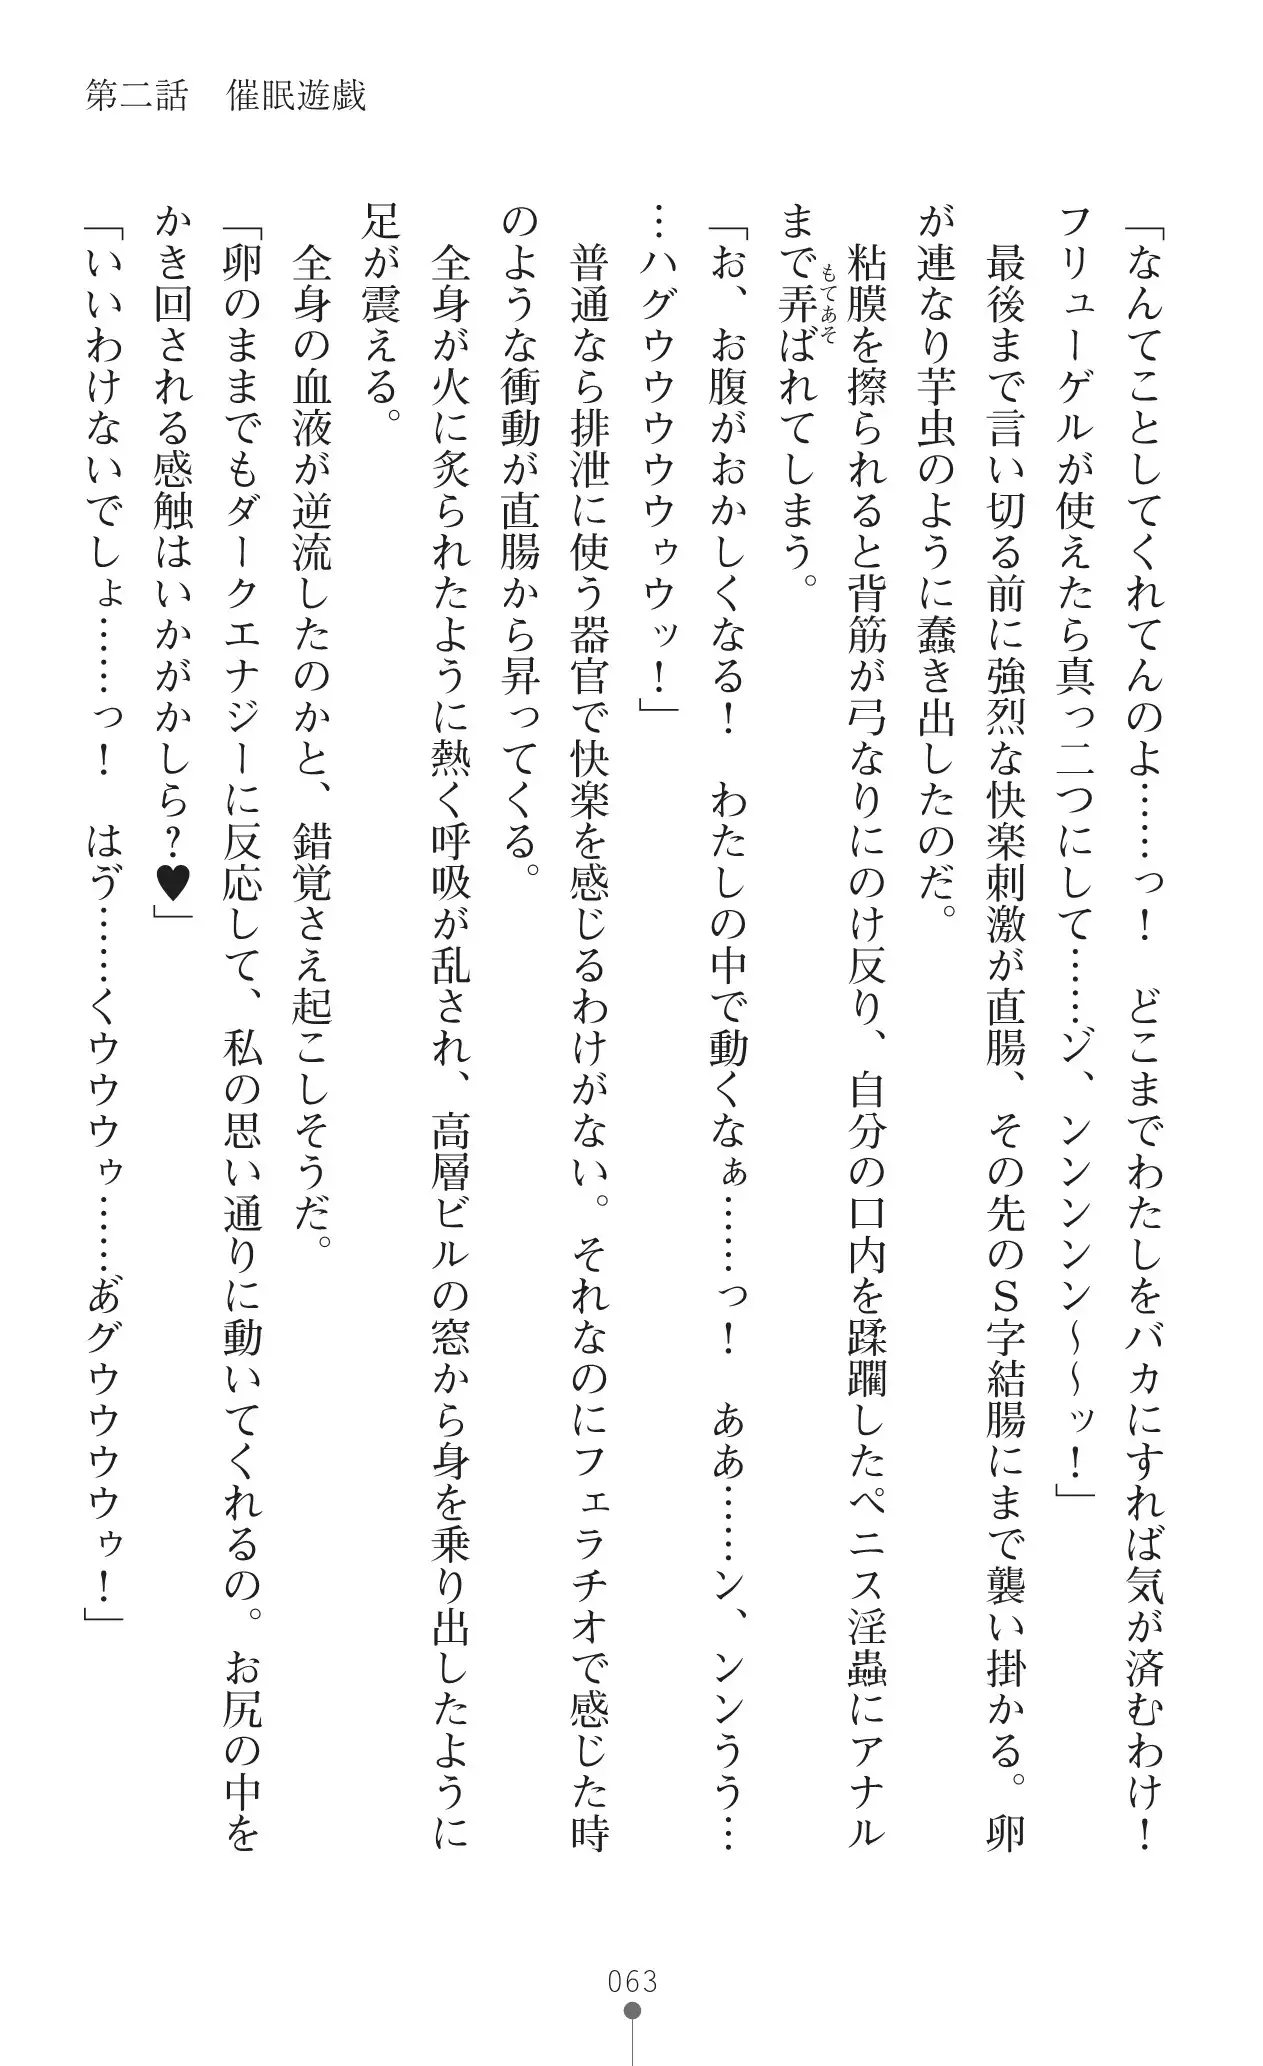 第二話　催眠遊戯
「なんてことしてくれてんのよ……っ！　どこまでわたしをバカにすれば気が済むわけ！
フリューゲルが使えたら真っ二つにして……ジ、ンンンンン～～ッ！」
　最後まで言い切る前に強烈な快楽刺激が直腸、その先のＳ字結腸にまで襲い掛かる。卵
が連なり芋虫のように蠢き出したのだ。
　粘膜を擦られると背筋が弓なりにのけ反り、自分の口内を蹂躙したペニス淫蟲にアナル
まで弄ばれてしまう。
もてあそ
「お、お腹がおかしくなる！　わたしの中で動くなぁ……っ！　ああ……ン、ンンうう…
…ハグウウウウウゥウッ！」
　普通なら排泄に使う器官で快楽を感じるわけがない。それなのにフェラチオで感じた時
のような衝動が直腸から昇ってくる。
　全身が火に炙られたように熱く呼吸が乱され、高層ビルの窓から身を乗り出したように
足が震える。
　全身の血液が逆流したのかと、錯覚さえ起こしそうだ。
「卵のままでもダークエナジーに反応して、私の思い通りに動いてくれるの。お尻の中を
かき回される感触はいかがかしら？♥」
「いいわけないでしょ……っ！　はゔ……くウウウゥ……あ゙グウウウウゥ！」
063